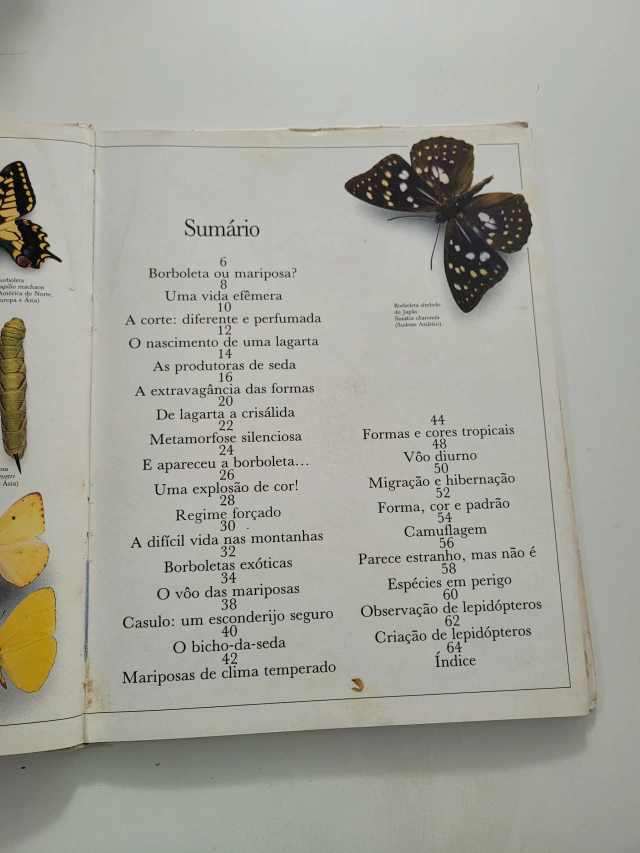 Sumário
6
Borboleta ou mariposa?
8
Uma vida efêmera
10
A corte: diferente e perfumada
12
O nascimento de uma lagarta
14
As produtoras de seda
16
A extravagância das formas
20
De lagarta a crisálida
22
Metamorfose silenciosa
24
E apareceu a borboleta...
26
Uma explosão de cor!
28
Regime forçado
30
A difícil vida nas montanhas
32
Borboletas exóticas
34
O vôo das mariposas
38
Casulo: um esconderijo seguro
40
O bicho-da-seda
42
Mariposas de clima temperado
44
Formas e cores tropicais
48
Vôo diurno
50
Migração e hibernação
52
Forma, cor e padrão
54
Camuflagem
56
Parece estranho, mas não é
58
Espécies em perigo
60
Observação de lepidópteros
62
Criação de lepidópteros
64
Índice
Borboleta símbolo
do Japão
Sasakia charonda
(Sudeste Asiático)
machaon
América do Norte,
e Ásia)
Ásia)